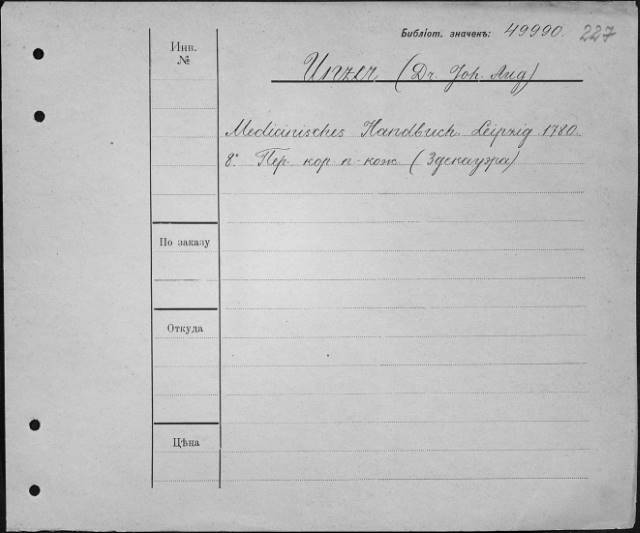 Библіот. значекъ: 49990. 227
Инв. №
Unzer (Dr. Joh. Aug)
Medicinisches Handbuch. Leipzig. 1780.
8°. Пер. кор п-кож. (Здекауэра)
По заказу
Откуда
Цѣна